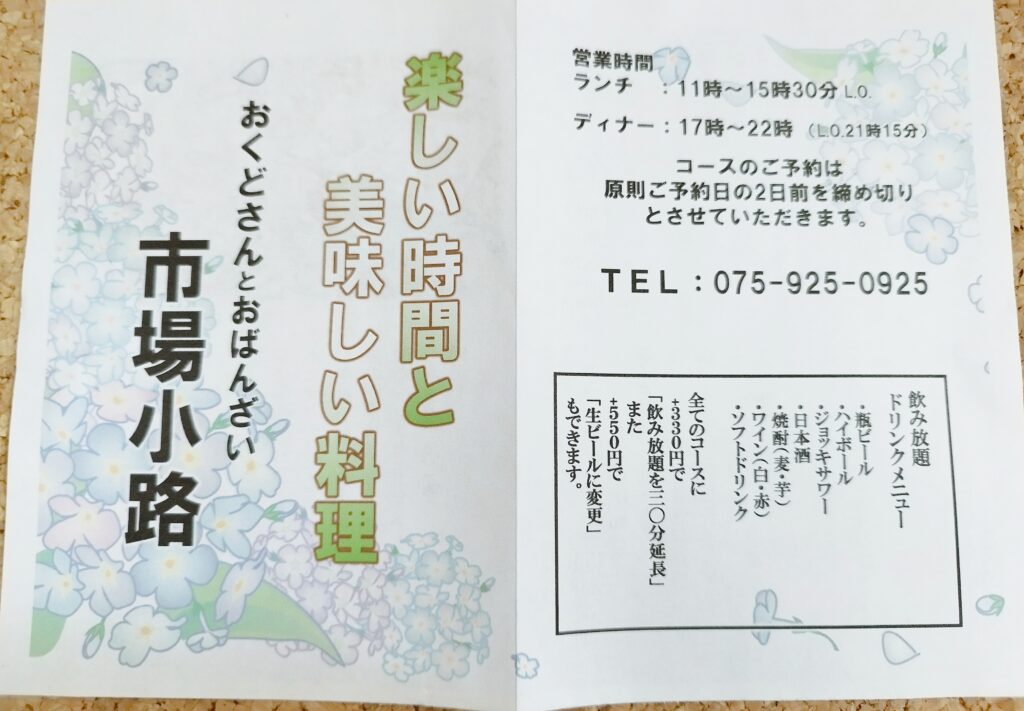 楽しい時間と
美味しい料理
おくどさんとおばんざい
市場小路
営業時間
ランチ ：11時～15時30分 L.O.
ディナー：17時～22時（L.O.21時15分）
コースのご予約は
原則ご予約日の2日前を締め切り
とさせていただきます。
TEL：075-925-0925
飲み放題
ドリンクメニュー
・瓶ビール
・ハイボール
・ジョッキサワー
・日本酒
・焼酎（麦・芋）
・ワイン（白・赤）
・ソフトドリンク
全てのコースに
+330円で
「飲み放題を三〇分延長」
また
+550円で
「生ビールに変更」
もできます。